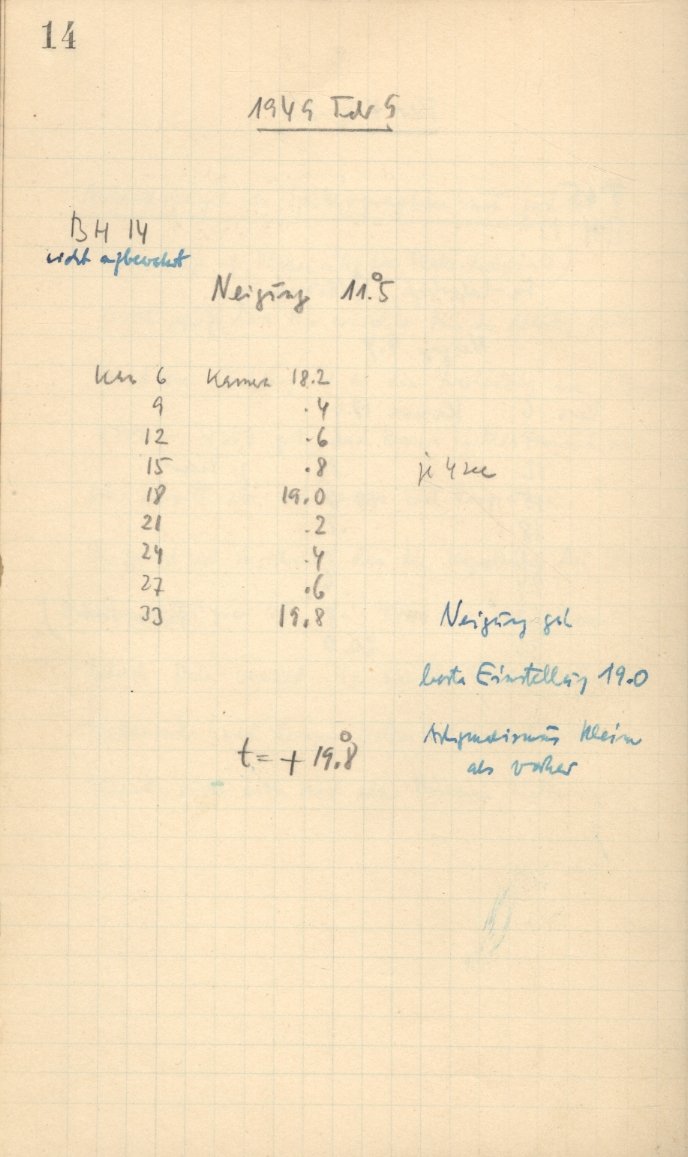 14
1949 Febr 5
BH 14
nicht aufbewahrt
Neigung 11°.5
Kass 6 Kamera 18.2
9 .4
12 .6
15 .8 je 4 sec
18 19.0
21 .2
24 .4
27 .6
33 19.8
Neigung gut
beste Einstellung 19.0
t = + 19°.8
Astigmatismus kleiner
als vorher